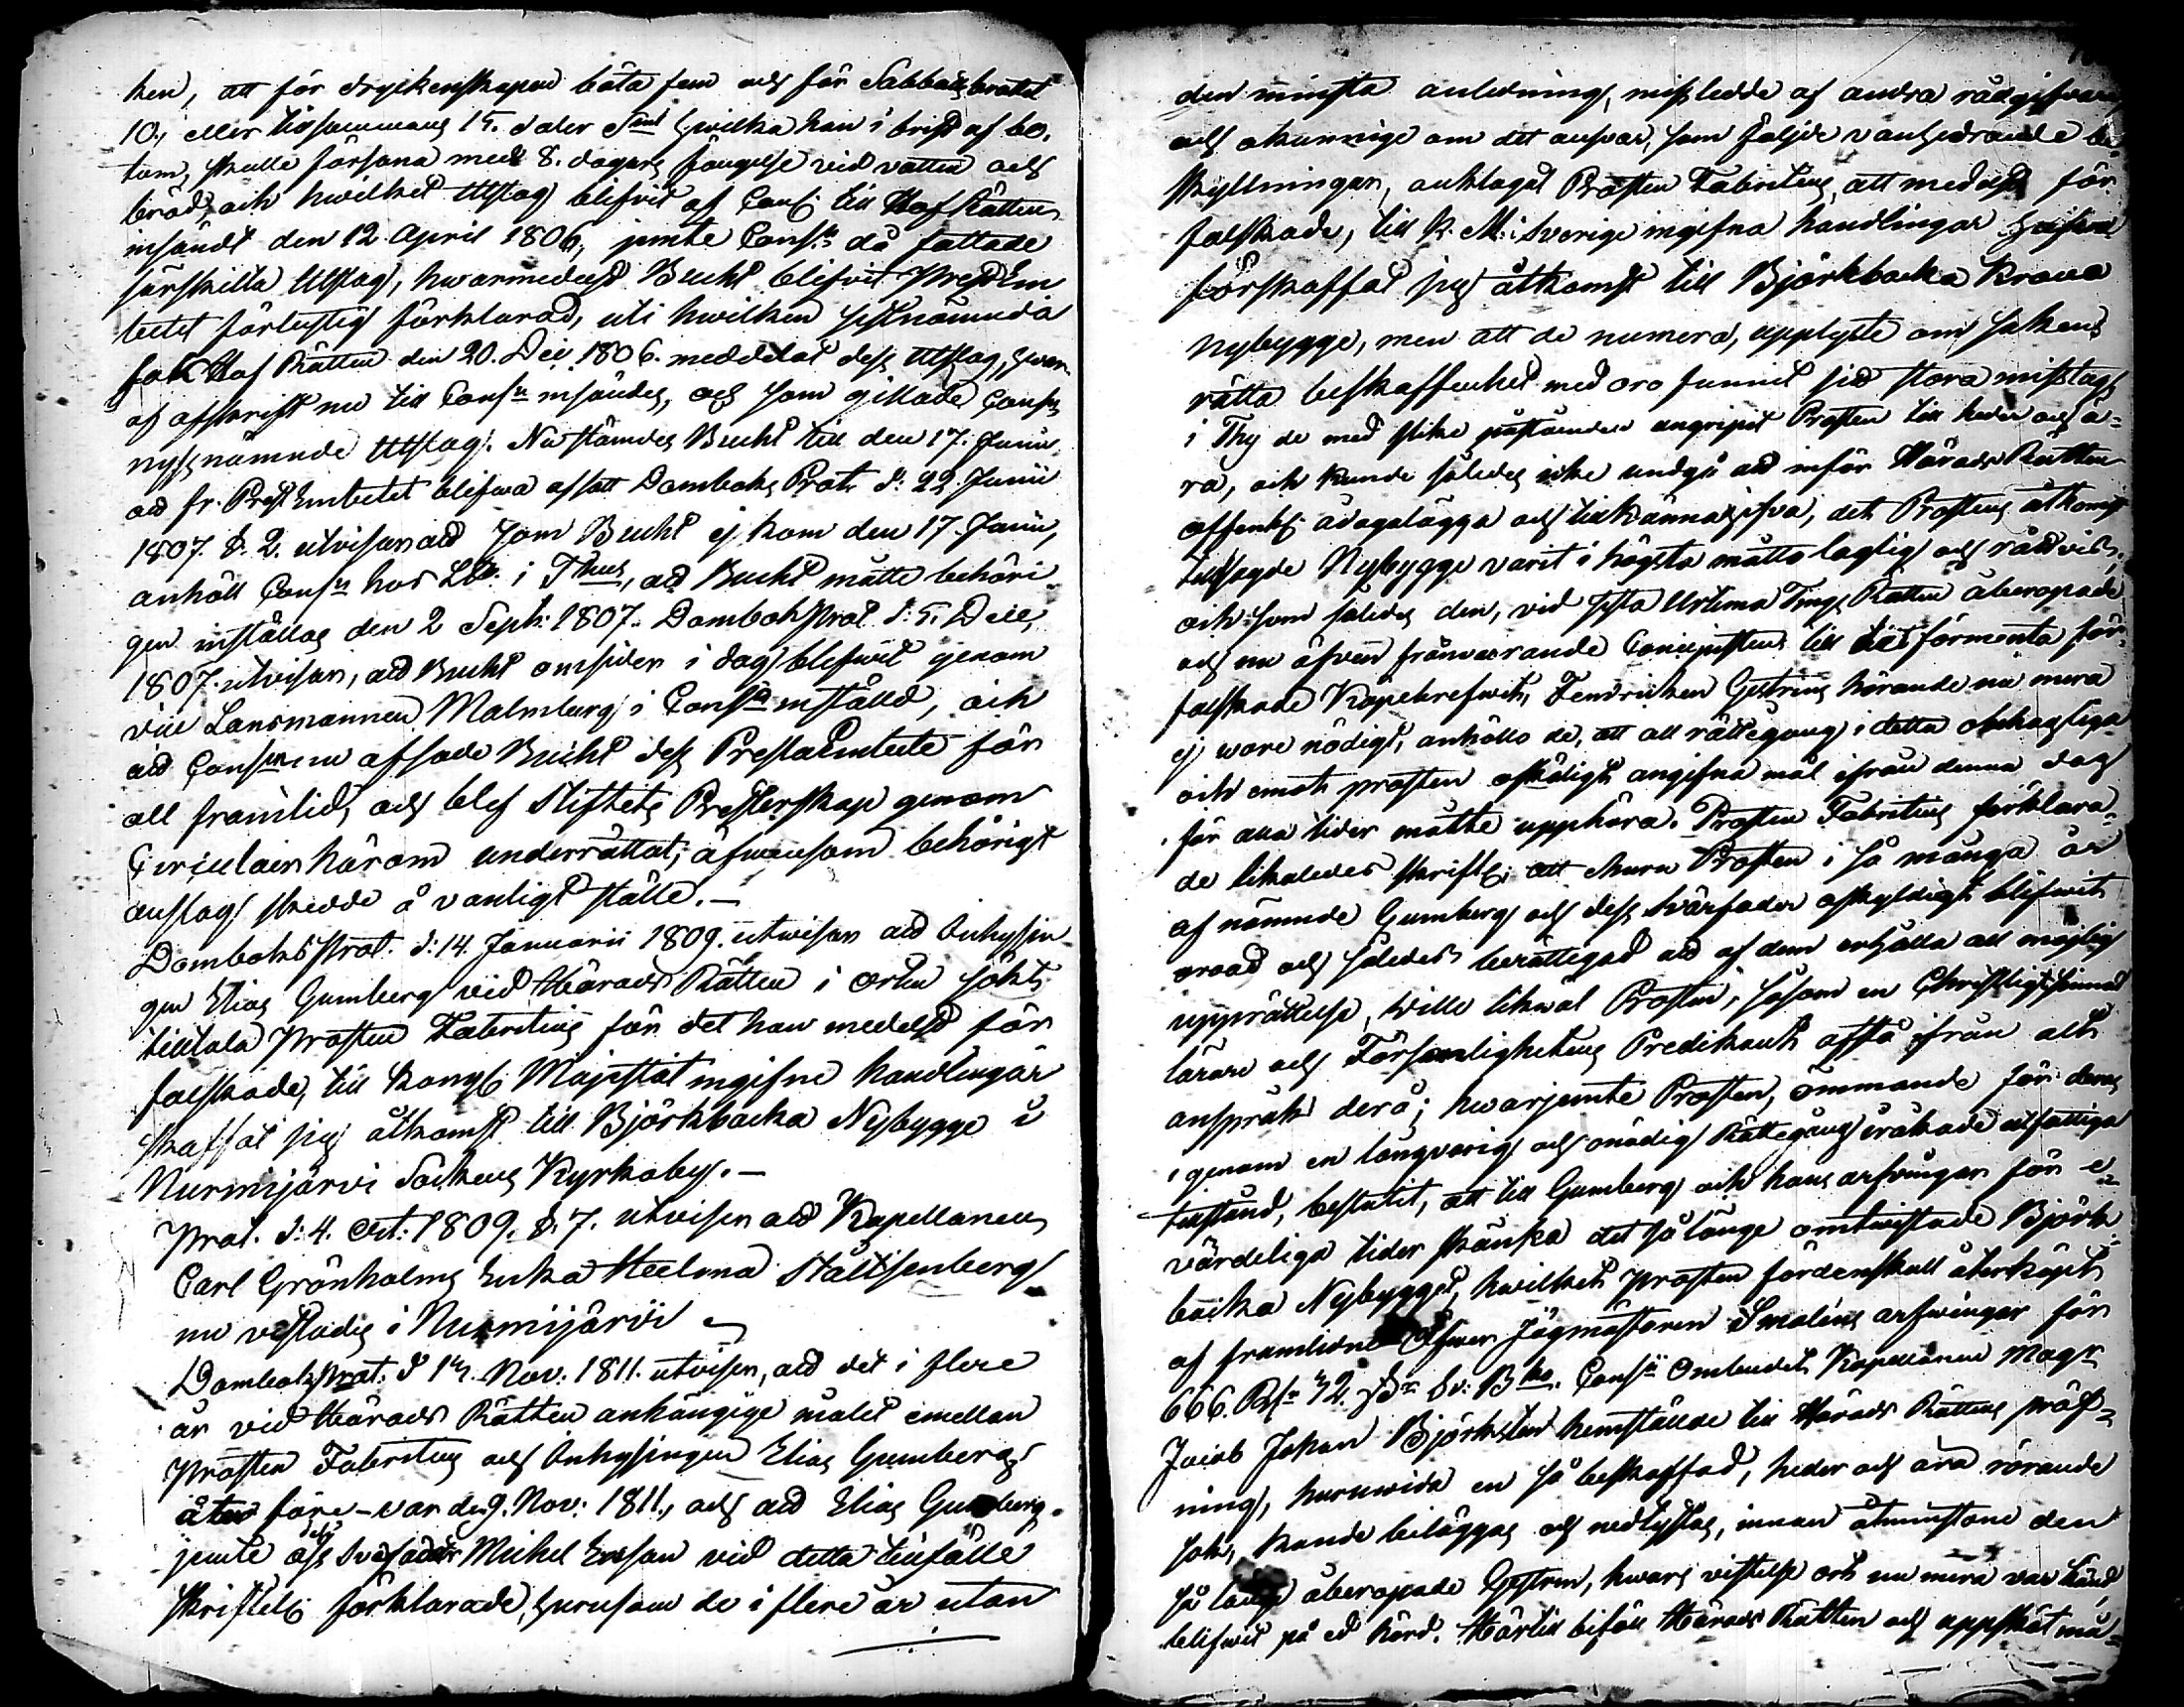 ken, att för dryckenskapen böta fem och för Sabbatsbrottet
10, eller tillsammans 15. daler Smt hwilka han i brist af bo,
tom, skulle försona med 8. dagars fängelse vid vatten och
bröd, och hwilket Utslag blifvit af Cons: till Hof Rätten
insändt den 12 April 1806, jemte Consii då fattade
särskilta Utslag, hwarmedelst Bucht blifvit PrestEm
betet förlustig förklarad, uti hwilken sistnämnda
sak Hof Rätten den 20. Dec. 1806. meddelat dess Utslag, hwar
af afskrift nu till Consm insändes, och som gillade Consii
nyssnämnde Utslag. Nu stämdes Bucht till den 17. Junii
att fr. PrestEmbetet blifwa afsatt Domboks Prot: d: 22 Junii
1807. §. 2. utvisar att som Bucht ej kom den 17. Junii,
anhöll Consm hos i Thus, att Bucht måtte behöri
gen inställas den 2 Sept: 1807. Domboksprot d: 5. Dec,
1807. utvisar, att Bucht omsider i dag blifwit genom
vice Länsmannen Malmberg i Consio instäld, och
att Consium nu afsade Bucht dess PrestaEmbete för
all framtid, och blef Stiftets Presterskap genom
Circulair härom underrättat, äfwensom behörigt
anslag skedde å vanligt ställe.—
Domboksprot. d: 14. Januarii 1809. utwisar att Inhysin
gen Elias Gumberg vid Härads Rätten i orten sökt
tilltala Prosten Fabritius för det han medelst för
falskade, till Kongl: Majestät ingifne handlingar
skaffat sig åtkomst till Björkbacka Nybygge i
Nurmijärvi Sockens Kyrkoby.—
Prot. d: 4. Oct: 1809. §. 7. utvisar att Kapellanen
Carl Grönholms Enka Heelena Ståltsenberg
nu vistades i Nurmijärvi
Domboksprot. d Nov: 1811. utvisar, att det i flere
år vid Härads Rätten anhängige målet emellan
Prosten Fabritius och Inhysingen Elias Gumberg
åter före-var den 9. Nov: 1811, och att Elias Gumberg
jemte dess Svärfader Michel Ersson vid detta tillfälle
skriftel: förklarade, hurusom de i flere år utan
den minsta anledning, missledde af andra rådgifvare
och okunnige om det answar, som följde vanhedrande be
skyllningar, anklagat Prosten Fabritius, att medelst för
falskade, till K. M: i Sverige ingifna handlingar
förskaffat sig åtkomst till Björkbacka Krono
nybygge, men att de numera, upplyste om sakens
rätta beskaffenhet med oro funnit sitt stora misstag,
i Thy de med slike påståenden angripit Prosten till heder och ä-
ra, och kunde således icke undgå att inför Härads Rätten
offentl: ådagalägga och tillkännagifva, det Prostens åtkomst
till sagde Nybygge varit i högsta måtto laglig och rättvis,
och som således den, vid sista Urtima Tings Rätten åberopade
och nu äfven frånvarande Concipisten till det förmenta för-
falskade Köpebrefwet, Fendricken Gestrins hörande nu mera
ej wore nödigt, anhöllo de, att all rättegång i detta obehagliga
och emot prosten oskäligt angifna mål ifrån denna dag
för alla tider måtte upphöra. Prosten Fabritius förklara-
de likaledes skriftl: att ehuru Prosten i så många år
af nämnde Gumberg och dess Svärfader oskyldigt blifwit
oroad och således berättigad att af dem erhålla all möjlig
upprättelse, wille likwäl Prosten, såsom en Christligtsinnad
lärare och Församlighetens Predikant afstå ifrån allt
anspråk derå; hwarjemte Prosten, ömmande för deras
igenom en långvarig och onödig Rättegång iråkade utfattiga
tillstånd, beslutit, att till Gumberg och hans arfvingar för e-
värdeliga tider skänka det så länge omtwistade Björk-
backa Nybygget, hwilket prosten fördenskull återköpt
af framlidne Öfwer Jägmästaren Smaléns arfwingar för
666. Rdr 32. s. Bko. Consii Ombudet Kapellanen Magr
Jacob Johan Björksten hemställde till Härads Rättens pröf-
ning, huruwida en så beskaffad, heder och ära rörande
sak, kunde biläggas och nedtystas, innan åtminstone den
så länge åberopade Gestrin, hwars vistelse ort nu mera var känd,
blifwit på ed hörd. Härtill biföll Härads Rätten och uppsköt må-